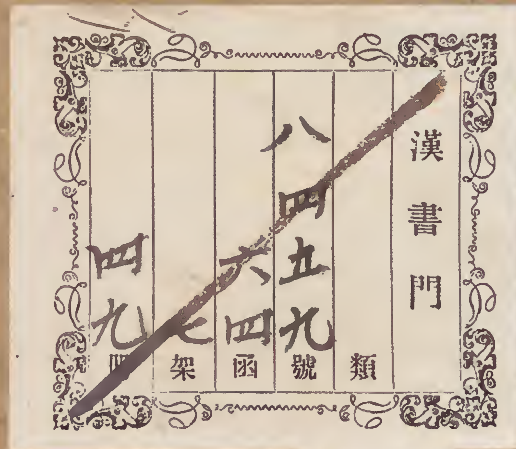 漢書門
類
八四五九號
六四函
七架
四九冊